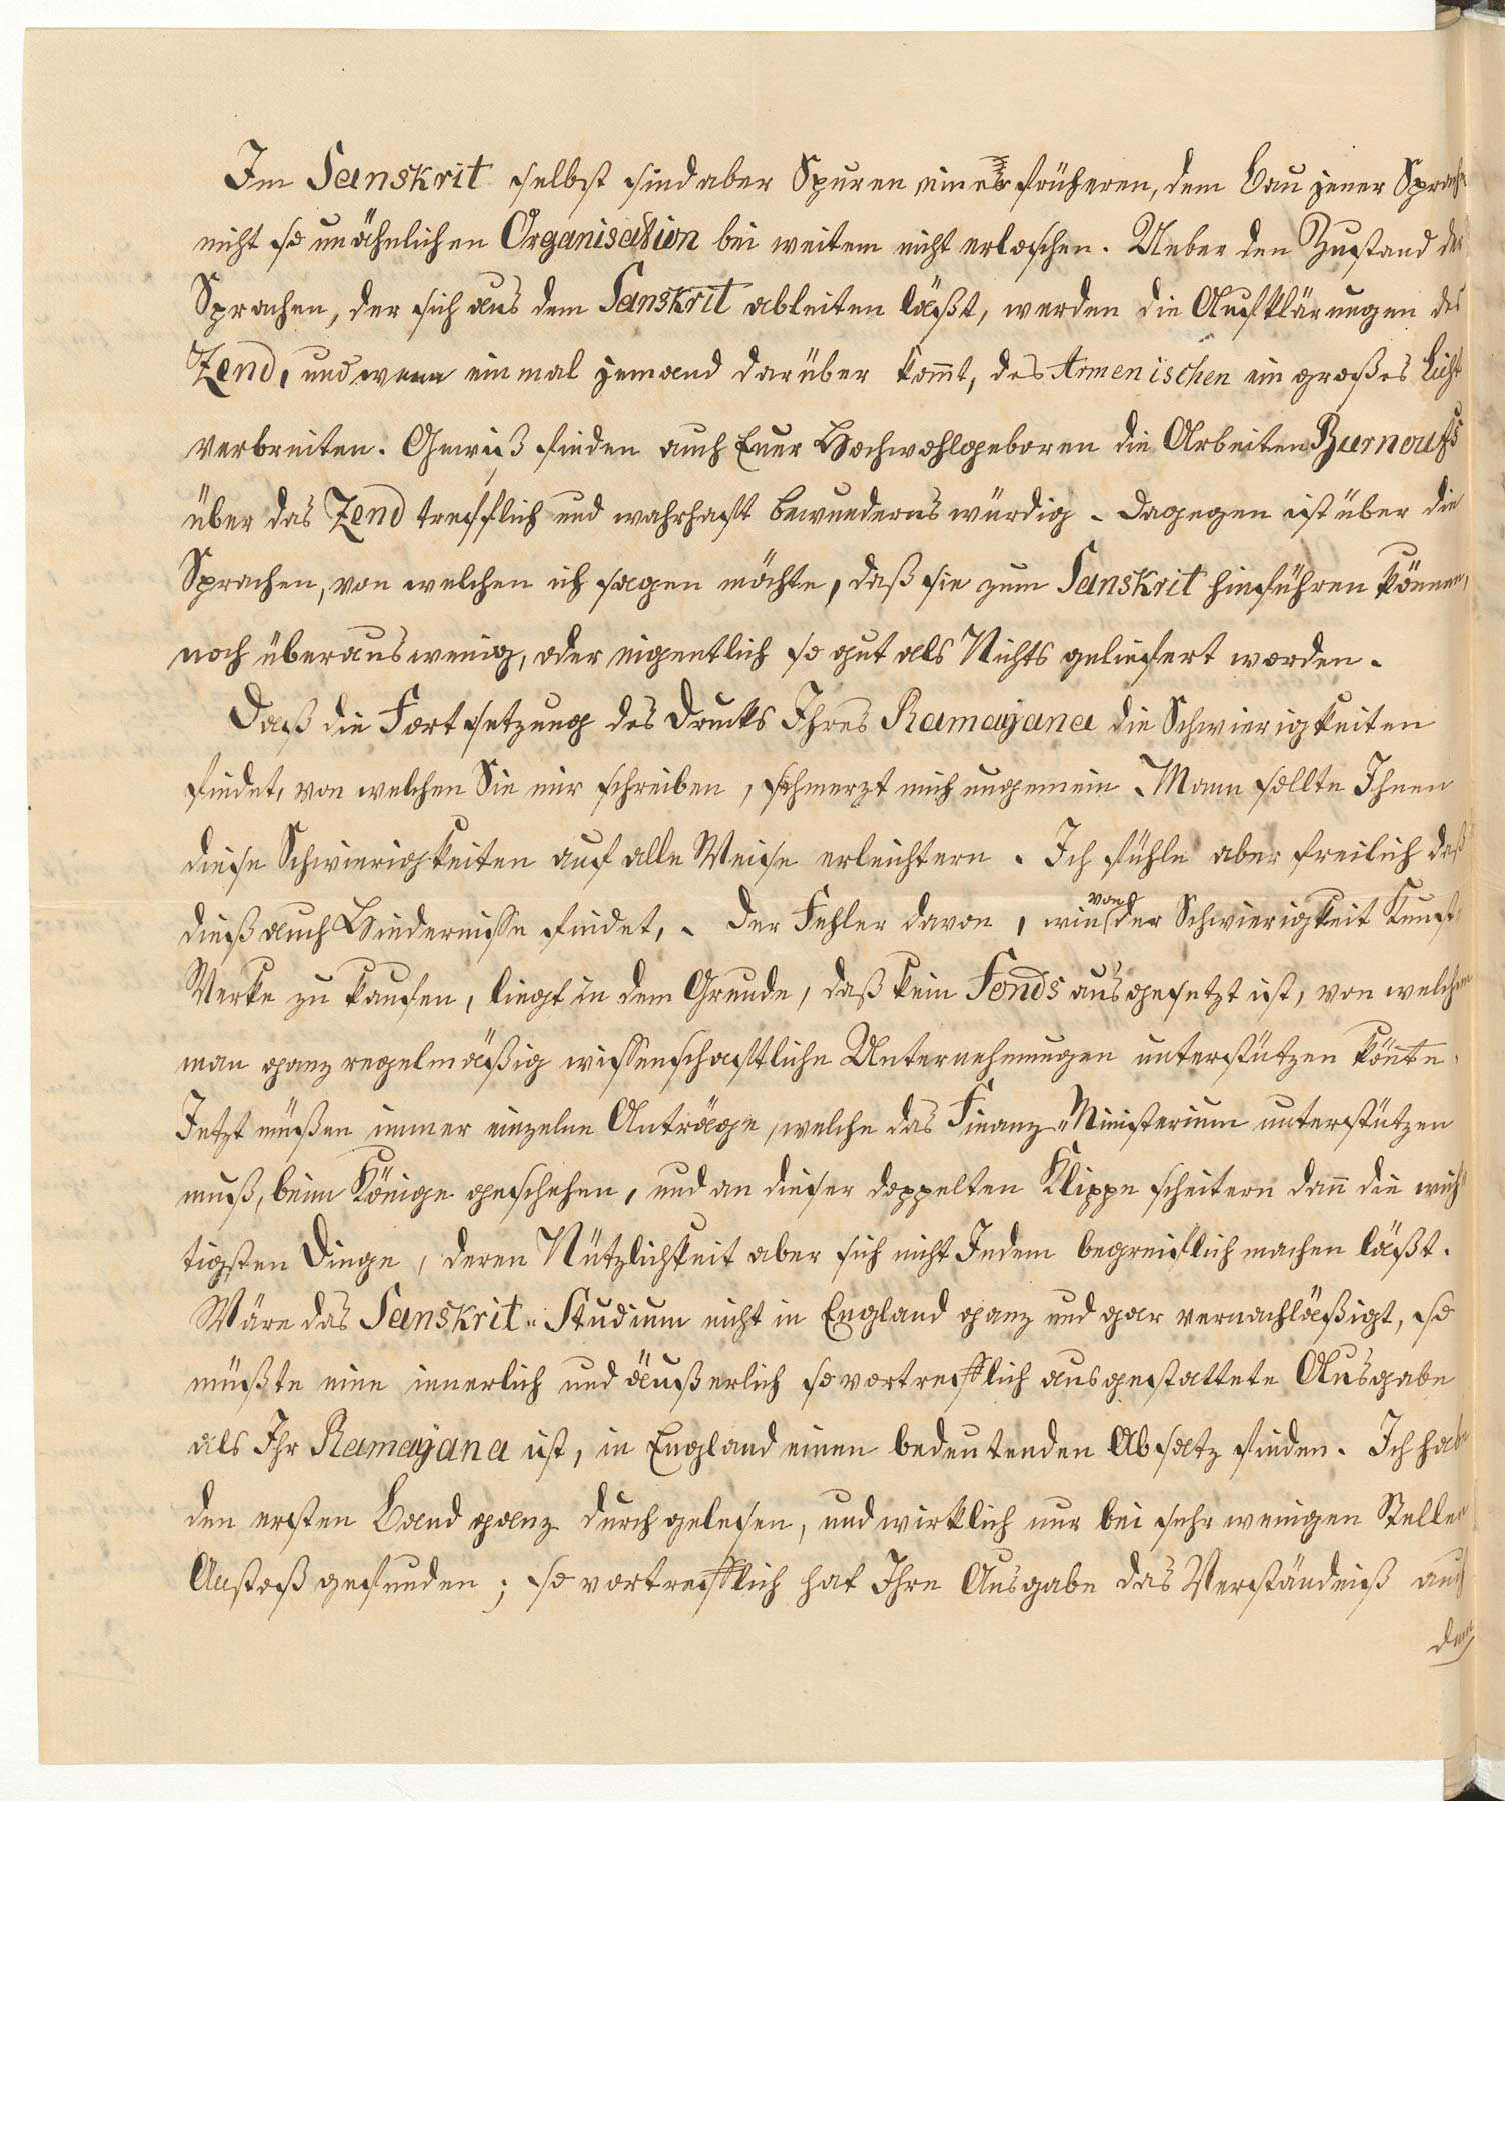 Im Sanskrit selbst sind aber Spuren einer früheren, dem Bau jener Sprache
nicht so unähnlichen Organisation bei weitem nicht erloschen. Ueber den Zustand der
Sprachen, der sich aus dem Sanskrit ableiten läßt, werden die Aufklärungen des
Zend, und wenn einmal jemand darüber kom̄t, des Armenischen ein großes Licht
verbreiten. Gewiß finden auch Euer Hochwohlgeboren die Arbeiten Burnoufs
über das Zend trefflich und wahrhaft bewundernswürdig. Dagegen ist über die
Sprachen, von welchen ich sagen möchte, daß sie zum Sanskrit hinführen können,
noch überaus wenig, oder eigentlich so gut als Nichts geliefert worden.
Daß die Fortsetzung des Drucks Ihres Ramayana die Schwierigkeiten
findet, von welchen Sie mir schreiben, schmerzt mich ungemein. Mann sollte Ihnen
diese Schwierigkeiten auf alle Weise erleichtern. Ich fühle aber freilich daß
dieß auch Hindernisse findet,. Der Fehler davon, wie von der Schwierigkeit Kunst-
Werke zu kaufen, liegt in dem Grunde, daß kein Fonds ausgesetzt ist, von welchem
man ganz regelmäßig wissenschaftliche Unternehmungen unterstützen kön̄te.
Jetzt müßen immer einzelne Anträge, welche das Finanz-Ministerium unterstützen
muß, beim Könige geschehen, und an dieser doppelten Klippe scheitern dan̄ die wich-
tigsten Dinge, deren Nützlichkeit aber sich nicht Jedem begreiflich machen läßt.
Wäre das Sanskrit-Studium nicht in England ganz und gar vernachläßigt, so
müßte eine innerlich und äußerlich so vortrefflich ausgestattete Ausgabe
als Ihr Ramayana ist, in England einen bedeutenden Absatz finden. Ich habe
den ersten Band ganz durchgelesen, und wirklich nur bei sehr wenigen Stellen
Anstoß gefunden; so vortrefflich hat Ihre Ausgabe das Verständniß auch